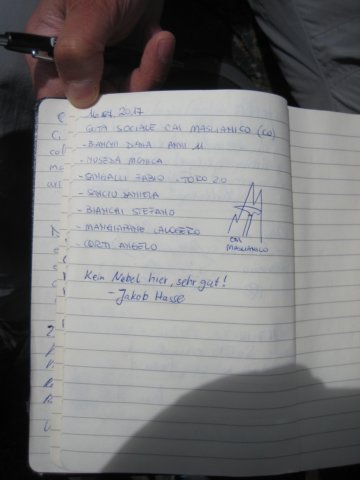 16.07.2017
GITA SOCIALE CAI MASLIANICO (CO)
- BIANCHI DARA ANNI 11
- NOSEDA MONICA
- SINGALLI FABIO - TORO 2.0
- SANCIU DANIELA
- BIANCHI STEFANO
- CORTI ANGELO
CAI
MASLIANICO
Kein Nebel hier, sehr gut!
- Jakob Hasse